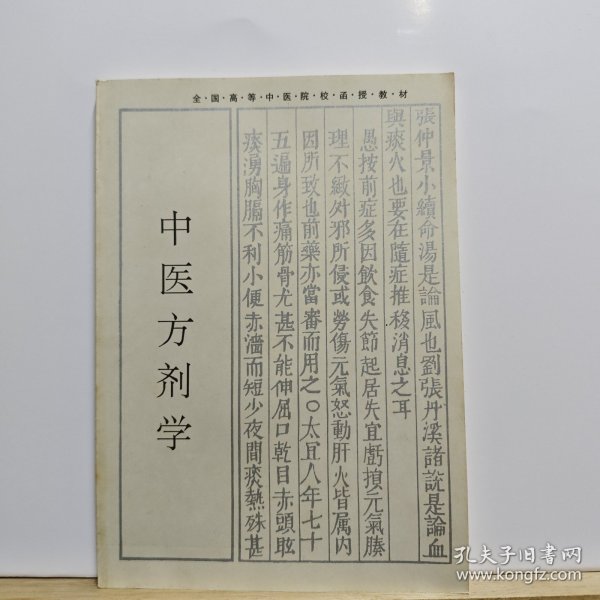 全·国·高·等·中·医·院·校·函·授·教·材
中医方剂学
張仲景小續命湯是論風也劉張丹溪諸説是論血
與痰火也要在隨症推移消息之耳
愚按前症多因飲食失節起居失宜虧損元氣腠
理不緻外邪所侵或勞傷元氣怒動肝火皆属内
因所致也前藥亦當審而用之○太宜人年七十
五遍身作痛筋骨尤甚不能伸屈口乾目赤頭眩
痰湧胸膈不利小便赤澀而短少夜間痰熱殊甚
孔夫子旧书网
www.kongfz.com